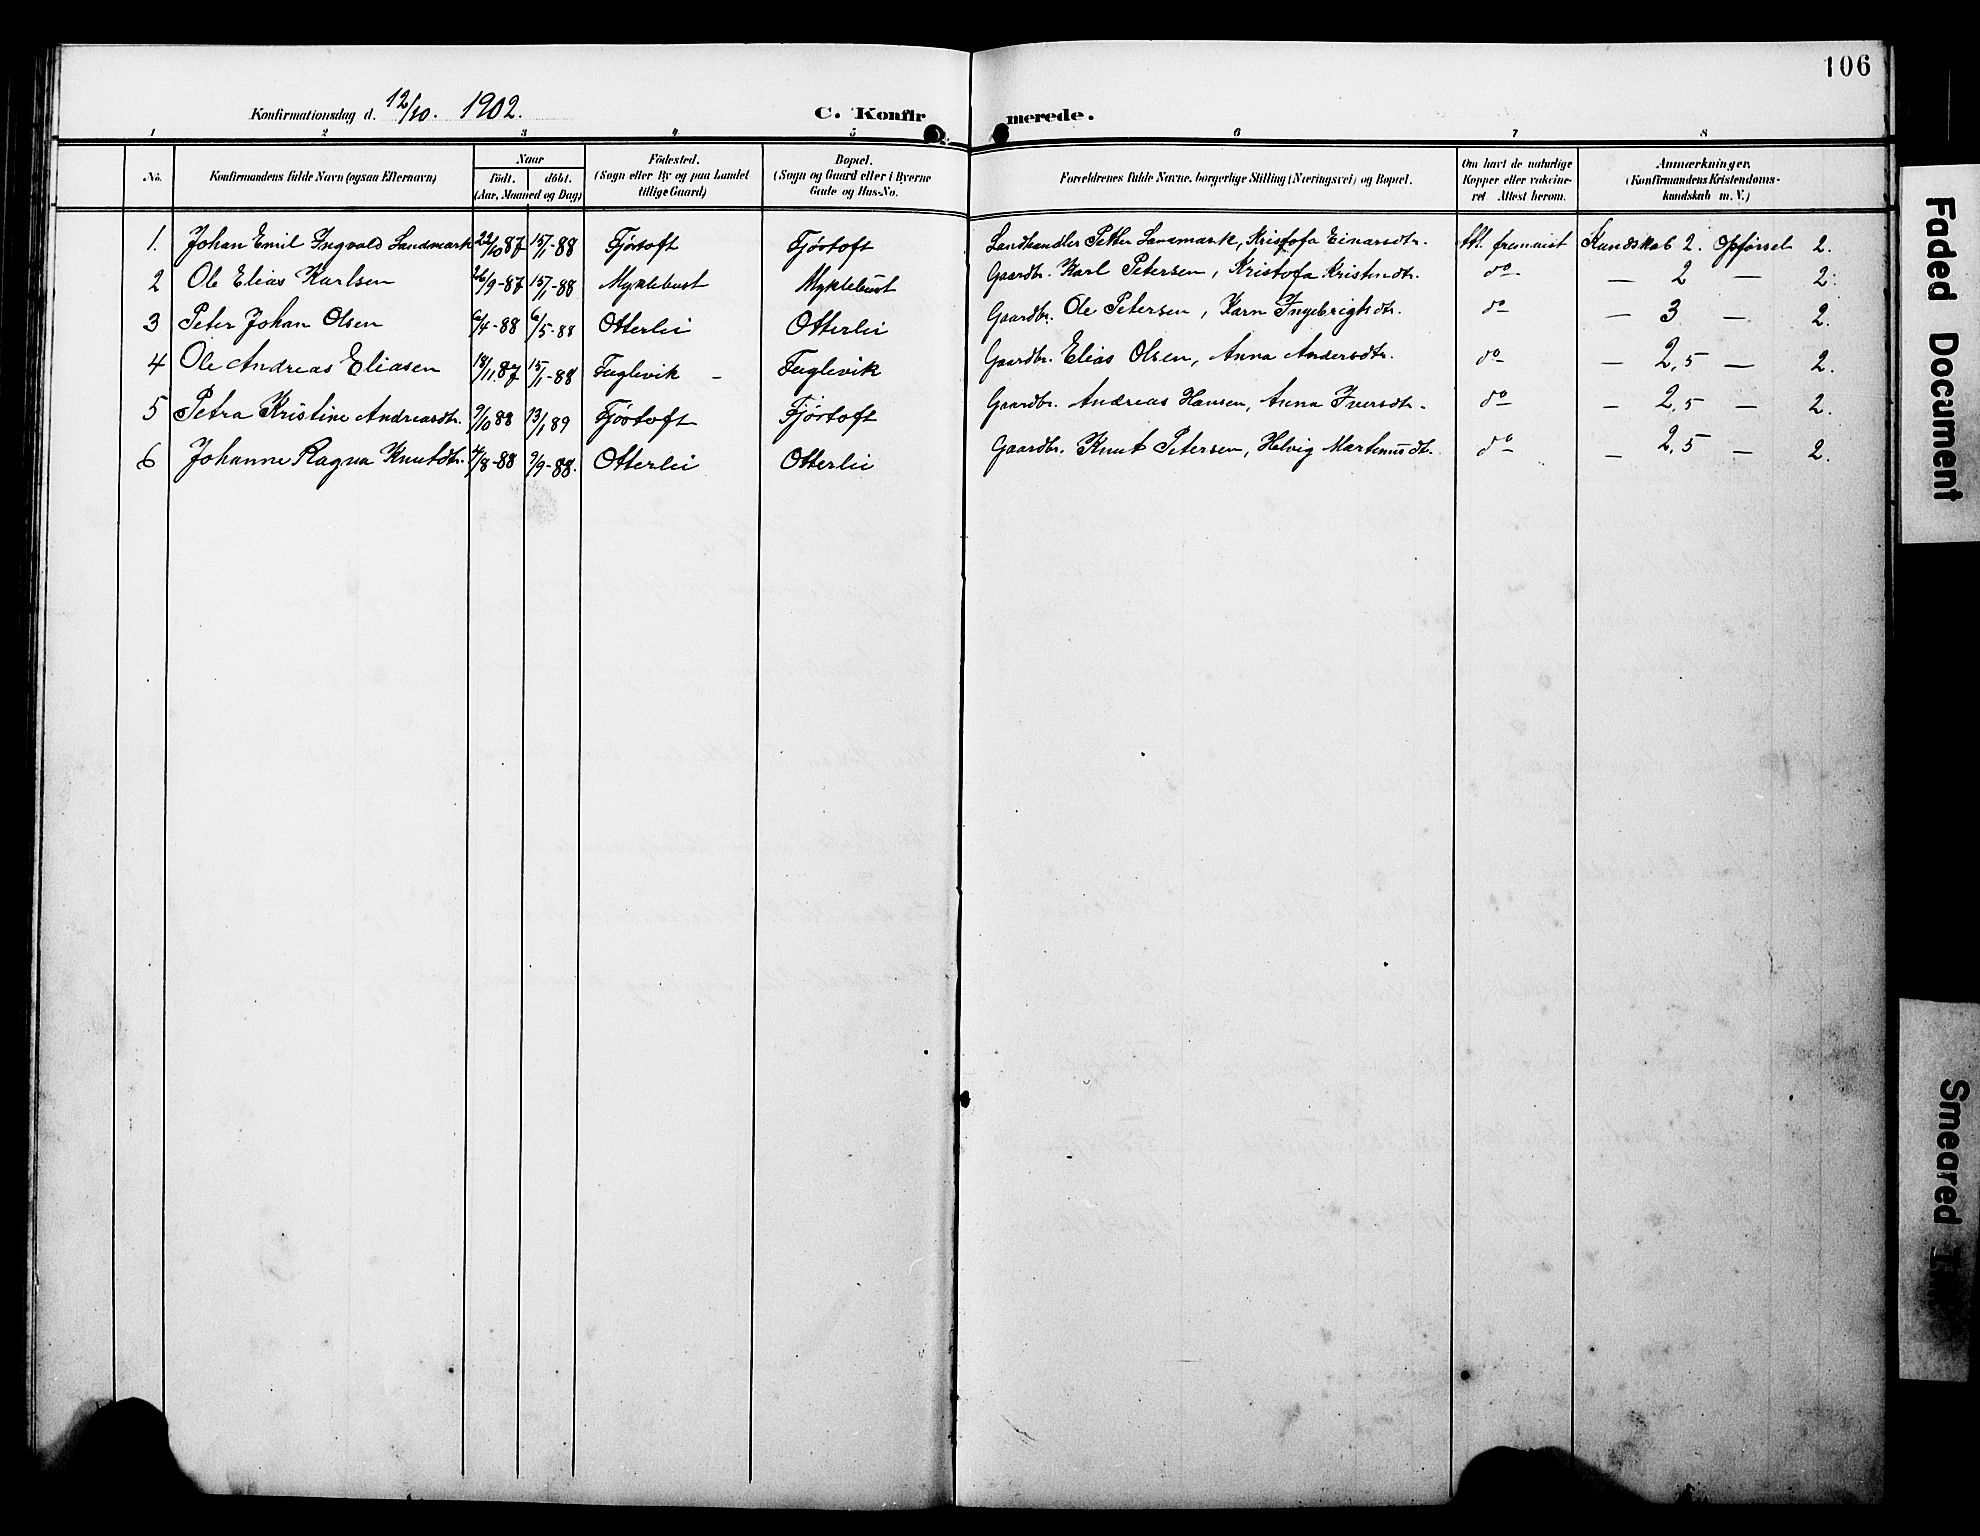 106
Konfirmationsdag d. 12/10. 1902. C. Konfirmerede.
1 2 3 4 5 6 7 8
No. Konfirmandens fulde Navn (ogsaa Efternavn) Naar Födt. döbt. (Aar, Maaned og Dag) Födested. (Sogn eller By og paa Landet tillige Gaard) Bopæl. (Sogn og Gaard eller i Byerne Gade og Hus-No. Forældrenes fulde Navne, borgerlige Stilling (Næringsvei) og Bopæl. Om havt de naturlige Kopper eller vakcineret Attest herom. Anmærkninger. (Konfirmandens Kristendomskundskab m. V.)
1. Johan Emil Ingvald Landmark 22/10 87 15/1-88 Fjørtoft Fjørtoft Landhandler Petter Landmark, Kristofa Einarsdtr. Att. fremvist Kundskab 2. Opførsel 2.
2 Ole Elias Karlsen 26/9-87 15/1-88 Myklebust Myklebust Gaardbr. Karl Petersen, Kristofa Kristendtr. do — 2 — 2.
3 Peter Johan Olsen 6/4-88 6/5-88 Otterlei Otterlei Gaardbr. Ole Petersen, Karn Ingebrigtsdtr. do — 3 — 2.
4 Ole Andreas Eliasen 18/11.87 15/1-88 Fuglevik – Fuglevik Gaardbr. Elias Olsen, Anna Andersdtr. do — 2,5 — 2.
5 Petra Kristine Andreasdtr. 9/10 88 13/1 89 Fjørtoft Fjørtoft Gaardbr. Andreas Hansen, Anna Iversdtr. do — 2,5 — 2.
6 Johanne Ragna Knutdtr. 4/8-88 9/9-88. Otterlei Otterlei Gaardbr. Knut Petersen, Helvig Martinusdtr. do — 2,5 — 2.
Faded Document
Smeared